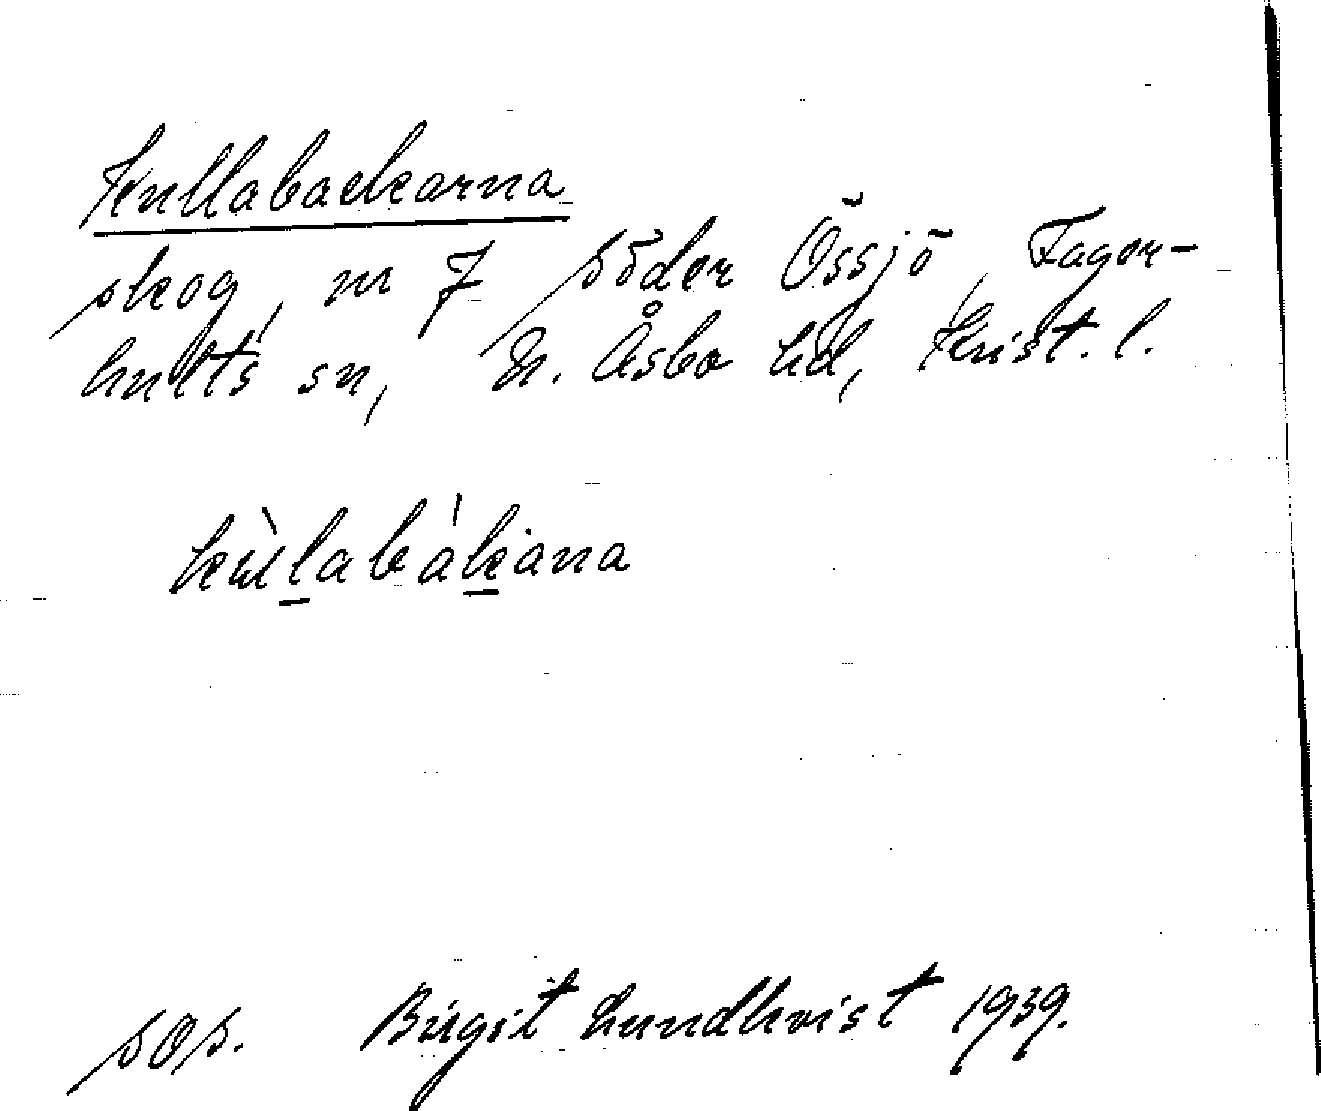 Kullabackarna
skog, nr 7 Söder Össjö, Fager-
hults sn, N. Åsbo hd, Krist. l.
kùlabákana
SOS. Birgit Lundkvist 1939.